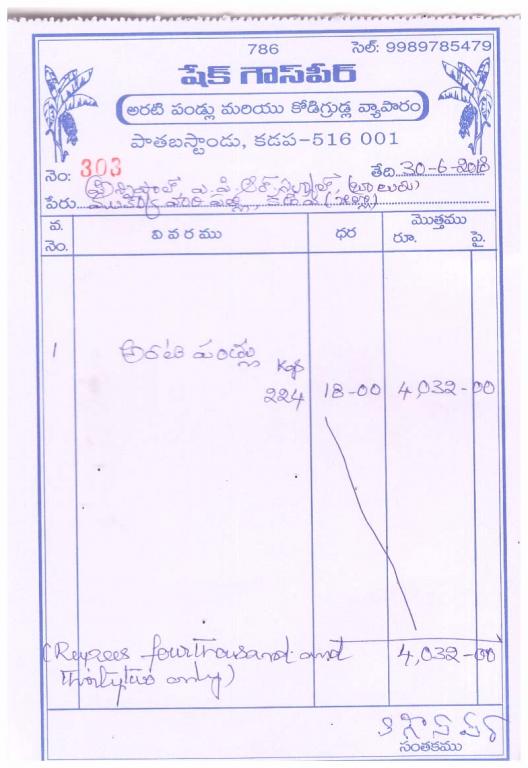 786 సెల్: 9989785479
షేక్ గౌస్‌పీర్
అరటి పండ్లు మరియు కోడిగ్రుడ్ల వ్యాపారం
పాతబస్టాండు, కడప-516 001
నెం: 303 తేది 30-6-2018
ప్రిన్సిపాల్, ఎ.పి.ఆర్.
పేరు
వ. నెం. వివరము ధర మొత్తము రూ. పై.
1 అరటి పండ్లు Kgs
224 18-00 4,032-00
(Rupees four thousand and 4,032-00
Thirty two only)
సంతకము